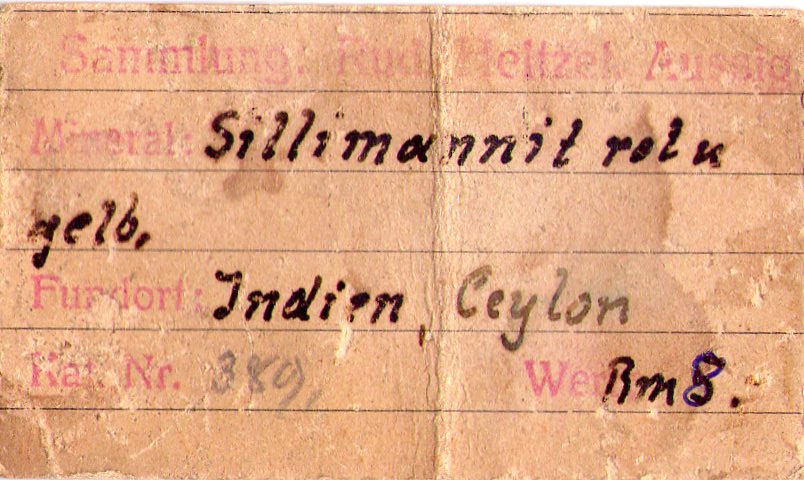 Sammlung: Rud. Heltzel Aussig
Mineral: Sillimannit rot u
gelb,
Fundort: Indien, Ceylon
Kat. Nr. 389, Wert Rm 8.